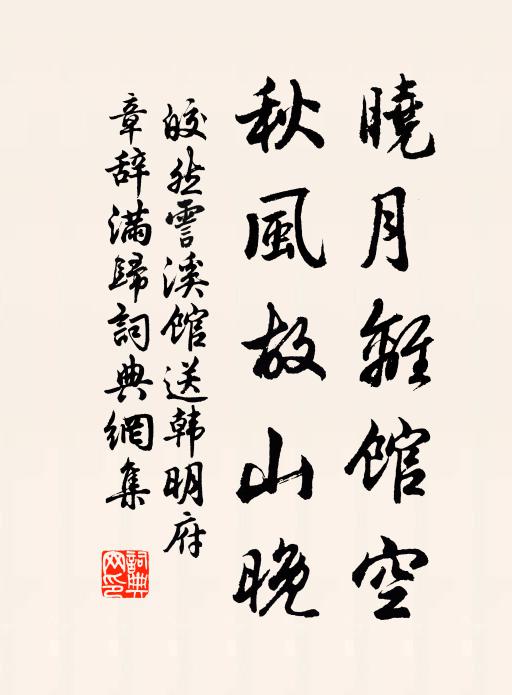 曉月離館空
秋風故山晚
皎然霅溪館送韩明府
章辞滿歸詞典網集
詞典网印